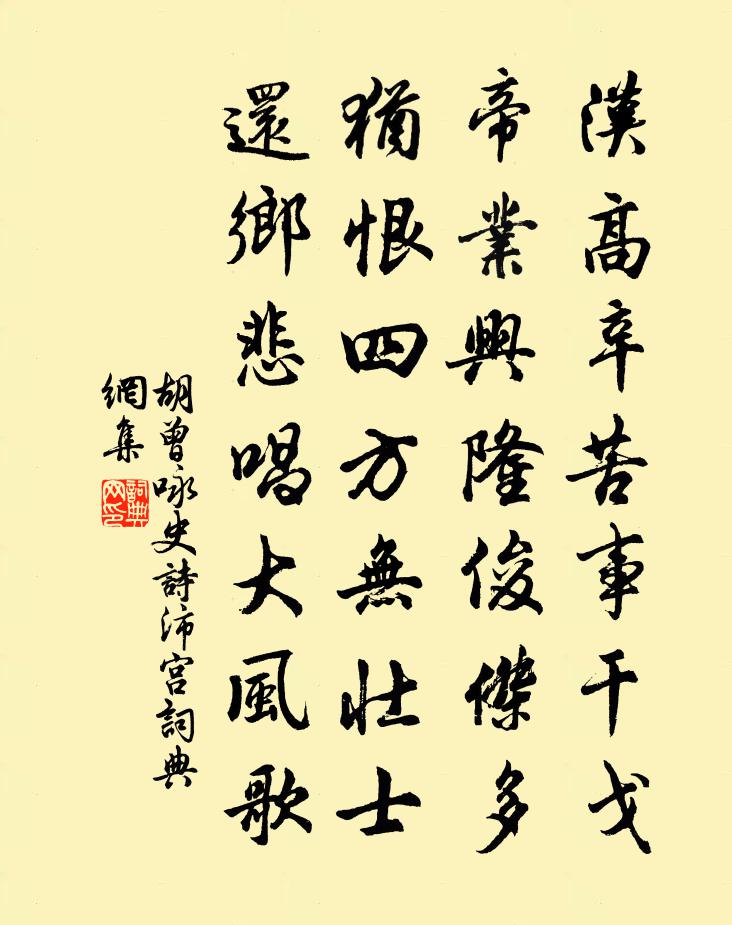 漢高辛苦事干戈
帝業興隆俊傑多
猶恨四方無壯士
還鄉悲唱大風歌
胡曾咏史詩沛宮詞典
網集
詞典
网印